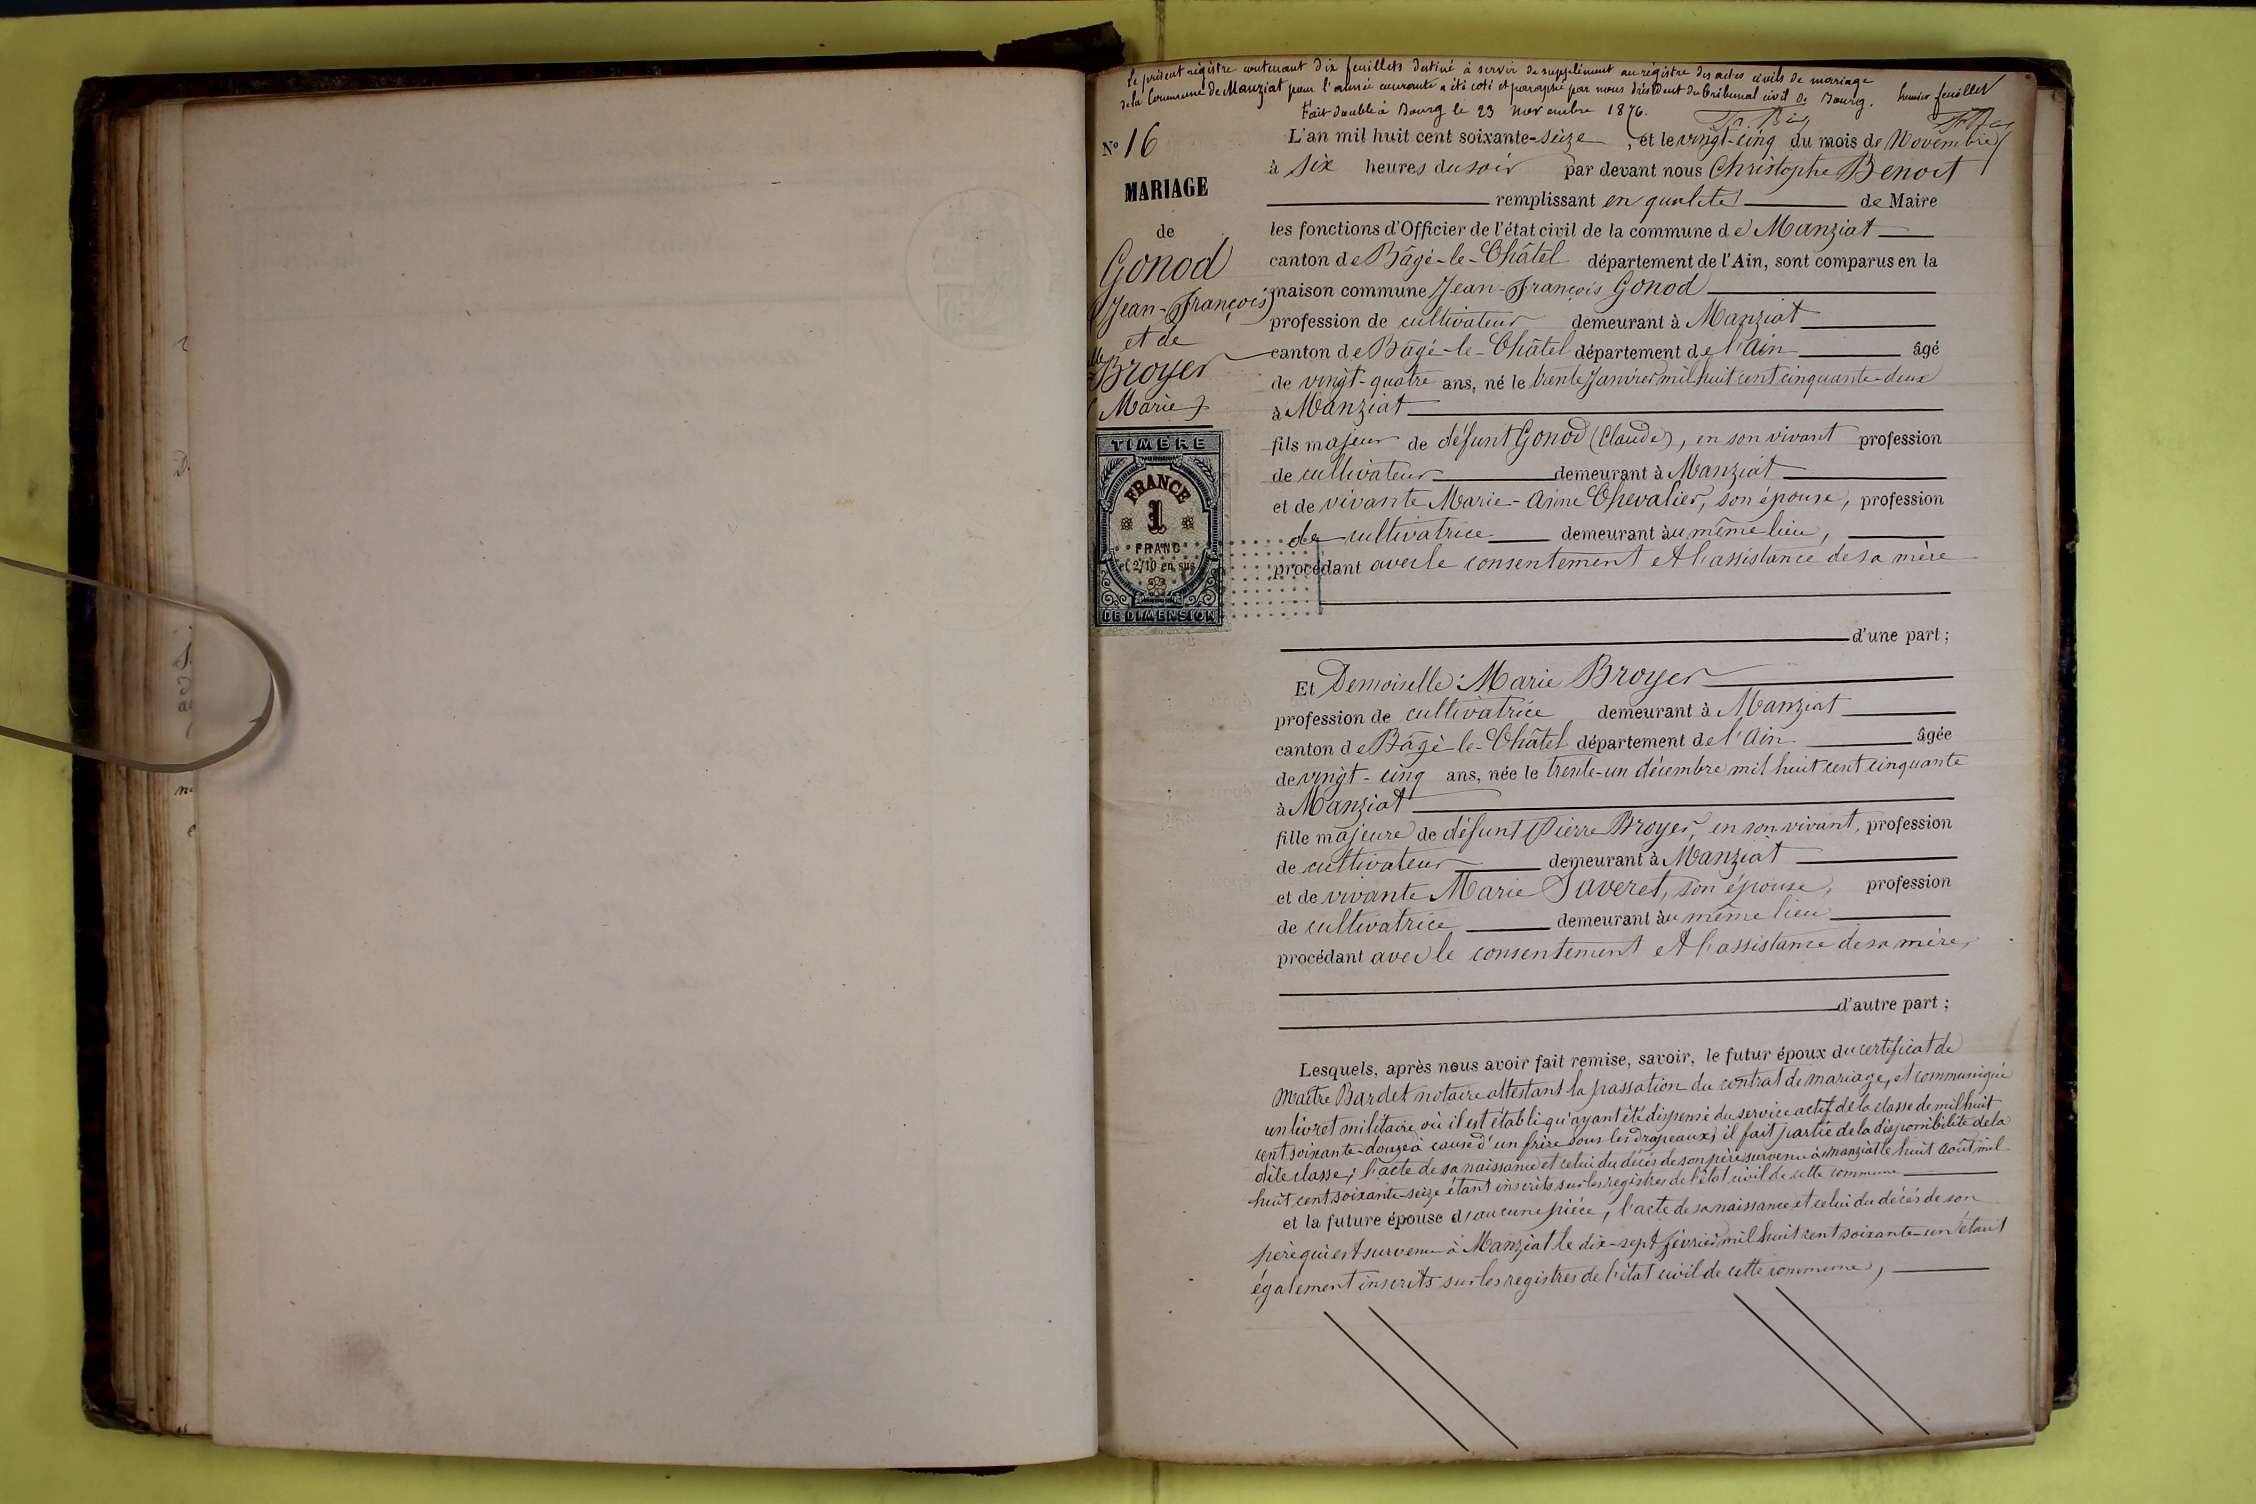 Le présent régistre contenant dix feuillets destiné à servir de supplément au régistre des actes civils de mariage
de la Commune de Manziat pour l'année courante a été coté et paraphé par nous Président du Tribunal civil de Bourg.
Premier feuillet
Fait double à Bourg le 23 Novembre 1876.
N° 16
MARIAGE
de
Gonod
(Jean-François)
et de
Mlle
Broyer
(Marie)
TIMBRE
FRANCE
1
FRANC
et 2/10 en sus
DE DIMENSION
L'an mil huit cent soixante-seize, et le vingt-cinq du mois de Novembre
à six heures du soir par devant nous Christophe Benoit
remplissant en qualité de Maire
les fonctions d'Officier de l'état civil de la commune de Manziat
canton de Bâgé-le-Châtel département de l'Ain, sont comparus en la
maison commune Jean-François Gonod
profession de cultivateur demeurant à Manziat
canton de Bâgé-le-Châtel département de l'Ain âgé
de vingt-quatre ans, né le trente Janvier mil huit cent cinquante-deux
à Manziat
fils majeur de défunt Gonod (Claude), en son vivant profession
de cultivateur demeurant à Manziat
et de vivante Marie-Anne Chevalier, son épouse, profession
de cultivatrice demeurant au même lieu,
procédant avec le consentement et l'assistance de sa mère
d'une part;
Et Demoiselle: Marie Broyer
profession de cultivatrice demeurant à Manziat
canton de Bâgé-le-Châtel département de l'Ain âgée
de vingt-cinq ans, née le trente-un décembre mil huit cent cinquante
à Manziat
fille majeure de défunt Pierre Broyer, en son vivant, profession
de cultivateur demeurant à Manziat
et de vivante Marie son épouse, profession
de cultivatrice demeurant au même lieu
procédant avec le consentement et l'assistance de sa mère,
d'autre part;
Lesquels, après nous avoir fait remise, savoir, le futur époux du certificat de
Maître Bardet notaire attestant la passation du contrat de mariage, et communiqué
un livret militaire où il est établi qu'ayant été dispensé du service actif de la classe de mil huit
cent soixante-douze à cause d'un frère sous les drapeaux, il fait partie de la disponibilité de la
dite classe; l'acte de sa naissance et celui du décès de son père survenu à Manziat le huit août mil
huit cent soixante-seize étant inscrits sur les registres de l'état civil de cette commune
et la future épouse d'aucune pièce, l'acte de sa naissance et celui du décès de son
père qui est survenu à Manziat le dix-sept février mil huit cent soixante-un étant
également inscrits sur les registres de l'état civil de cette commune,